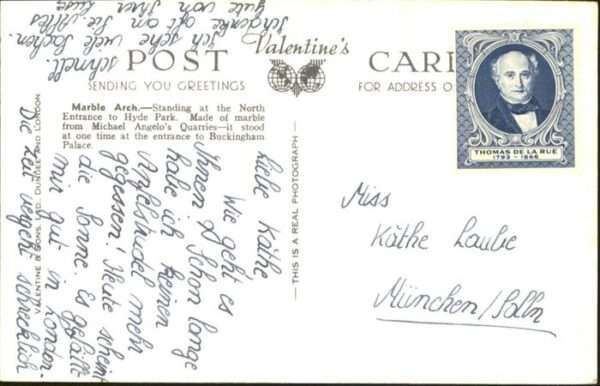 POST
Valentine's
CARD
SENDING YOU GREETINGS
FOR ADDRESS O
Marble Arch.—Standing at the North
Entrance to Hyde Park. Made of marble
from Michael Angelo's Quarries—it stood
at one time at the entrance to Buckingham
Palace.
VALENTINE & SONS, LTD., DUNDEE AND LONDON
THIS IS A REAL PHOTOGRAPH
THOMAS DE LA RUE
1793 - 1866
Liebe Käthe
Wie geht es
Ihnen? Schon lange
habe ich keinen
Apfelstrudel mehr
gegessen! Heute scheint
die Sonne. Es gefällt
mir gut in London.
Die Zeit vergeht schrecklich
schnell.
Ich sehe viele Sachen.
Ich denke oft an Sie. Alles
gute von Ihrer
Miss
Käthe Laube
München/Solln